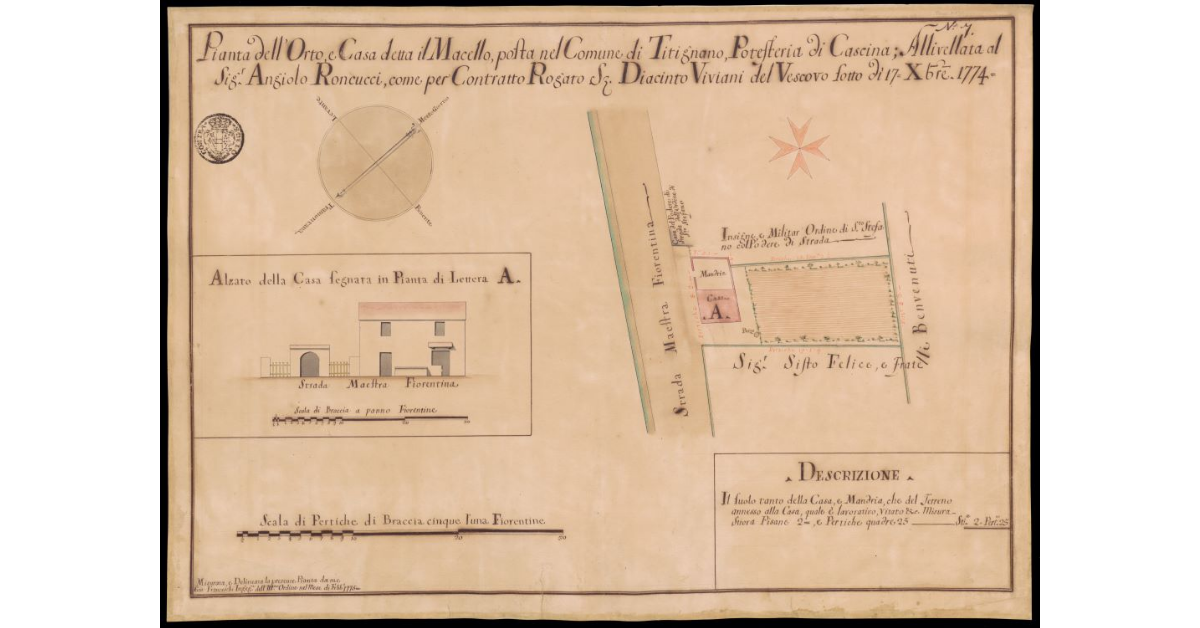 N.º 7.
Pianta dell'Orto, e Casa detta il Macello, posta nel Comune di Titignano, Potesteria di Cascina; Allivellata al
Sig.r Angiolo Roncucci, come per Contratto Rogato S.r Diacinto Viviani del Vescovo sotto dì 17. Xbre. 1774.
Levante
Mezzogiorno
Ponente
Tramontana
Strada Maestra Fiorentina
Insigne, e Militar Ordine di S.to Stefa-
no col Podere di Strada
Mandria
Casa
A.
Sig.r Sisto Felice, e Frate-
lli Benvenuti
Alzato della Casa segnata in Pianta di Lettera A.
Strada Maestra Fiorentina
Scala di Braccia a panno Fiorentine
Scala di Pertiche di Braccia cinque l'una Fiorentine
Descrizione
Il suolo tanto della Casa, e Mandria, che del Terreno
annesso alla Casa, quale è lavorativo, vitato &c. Misura
Stiora Pisane 2 –, e Pertiche quadre 25 Sti.ª 2. Per.e 25
Misurata, e Delineata la presente Pianta da me